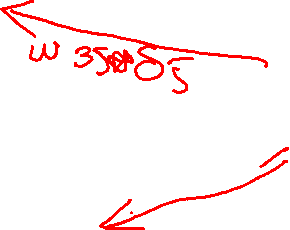 w 35 δ5